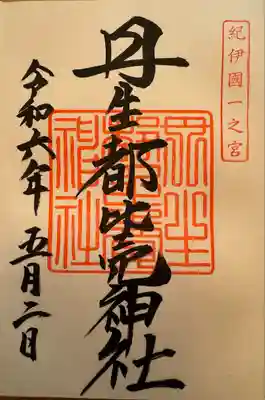 紀伊國一之宮
丹生都比売神社
令和六年 五月二日